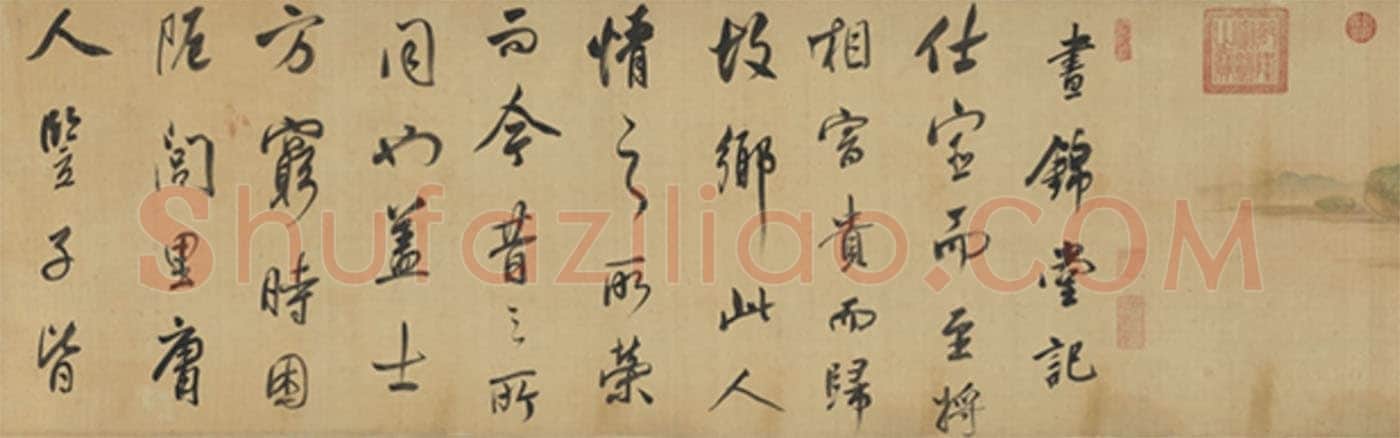 晝錦堂記
仕宦而至將
相富貴而歸
故鄉此人
情之所榮
而今昔之所
同也蓋士
方窮時困
阨閭里庸
人豎子皆
Shufaziliao.COM